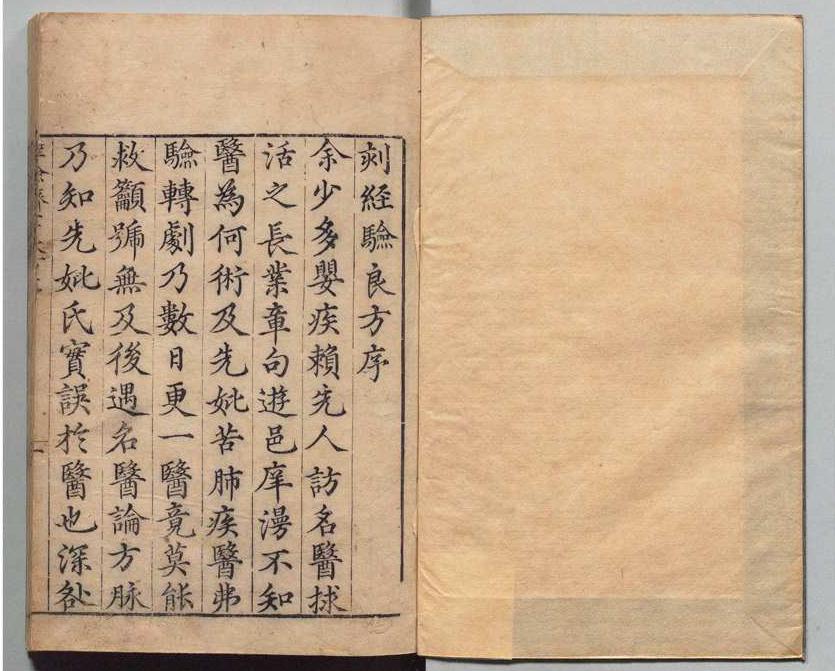 刻經驗良方序
余少多嬰疾賴先人訪名醫捄
活之長業章句遊邑庠漫不知
醫為何術及先妣苦肺疾醫弗
驗轉劇乃數日更一醫竟莫能
救籲號無及後遇名醫論方脉
乃知先妣氏實誤於醫也深咎